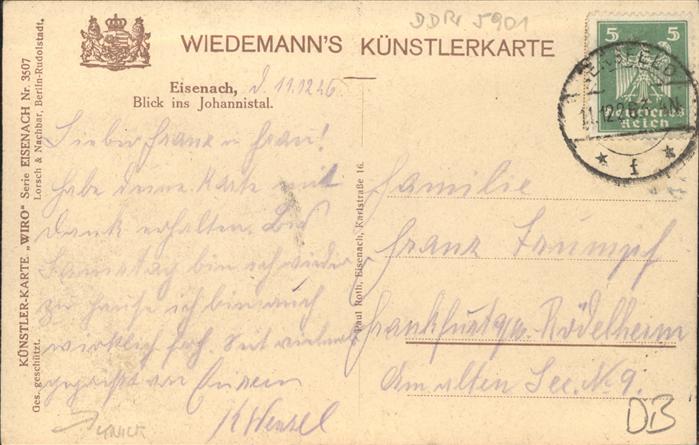 DDR 5901
WIEDEMANN'S KÜNSTLERKARTE
KÜNSTLER-KARTE „WIRO" Serie EISENACH Nr. 3507
Ges. geschützt. Lorsch & Nachbar, Berlin-Rudolstadt.
Eisenach, d. 11.12.26
Blick ins Johannistal.
Lieber Franz u Frau!
habe deine Karte mit
dank erhalten. Bis
Samstag bin ich wieder
zu hause ich bin auch
wirklich froh Seid vielmals
gegrüßt von Eurem
K Wensel
KNICK
Paul Roth, Eisenach, Karlstraße 16.
5 5
Deutsches
Reich
11.12.26 3-4N
* f *
Familie
Franz Trumpf
Frankfurt a/m. Rödelheim
Am alten See. No 9.
DB